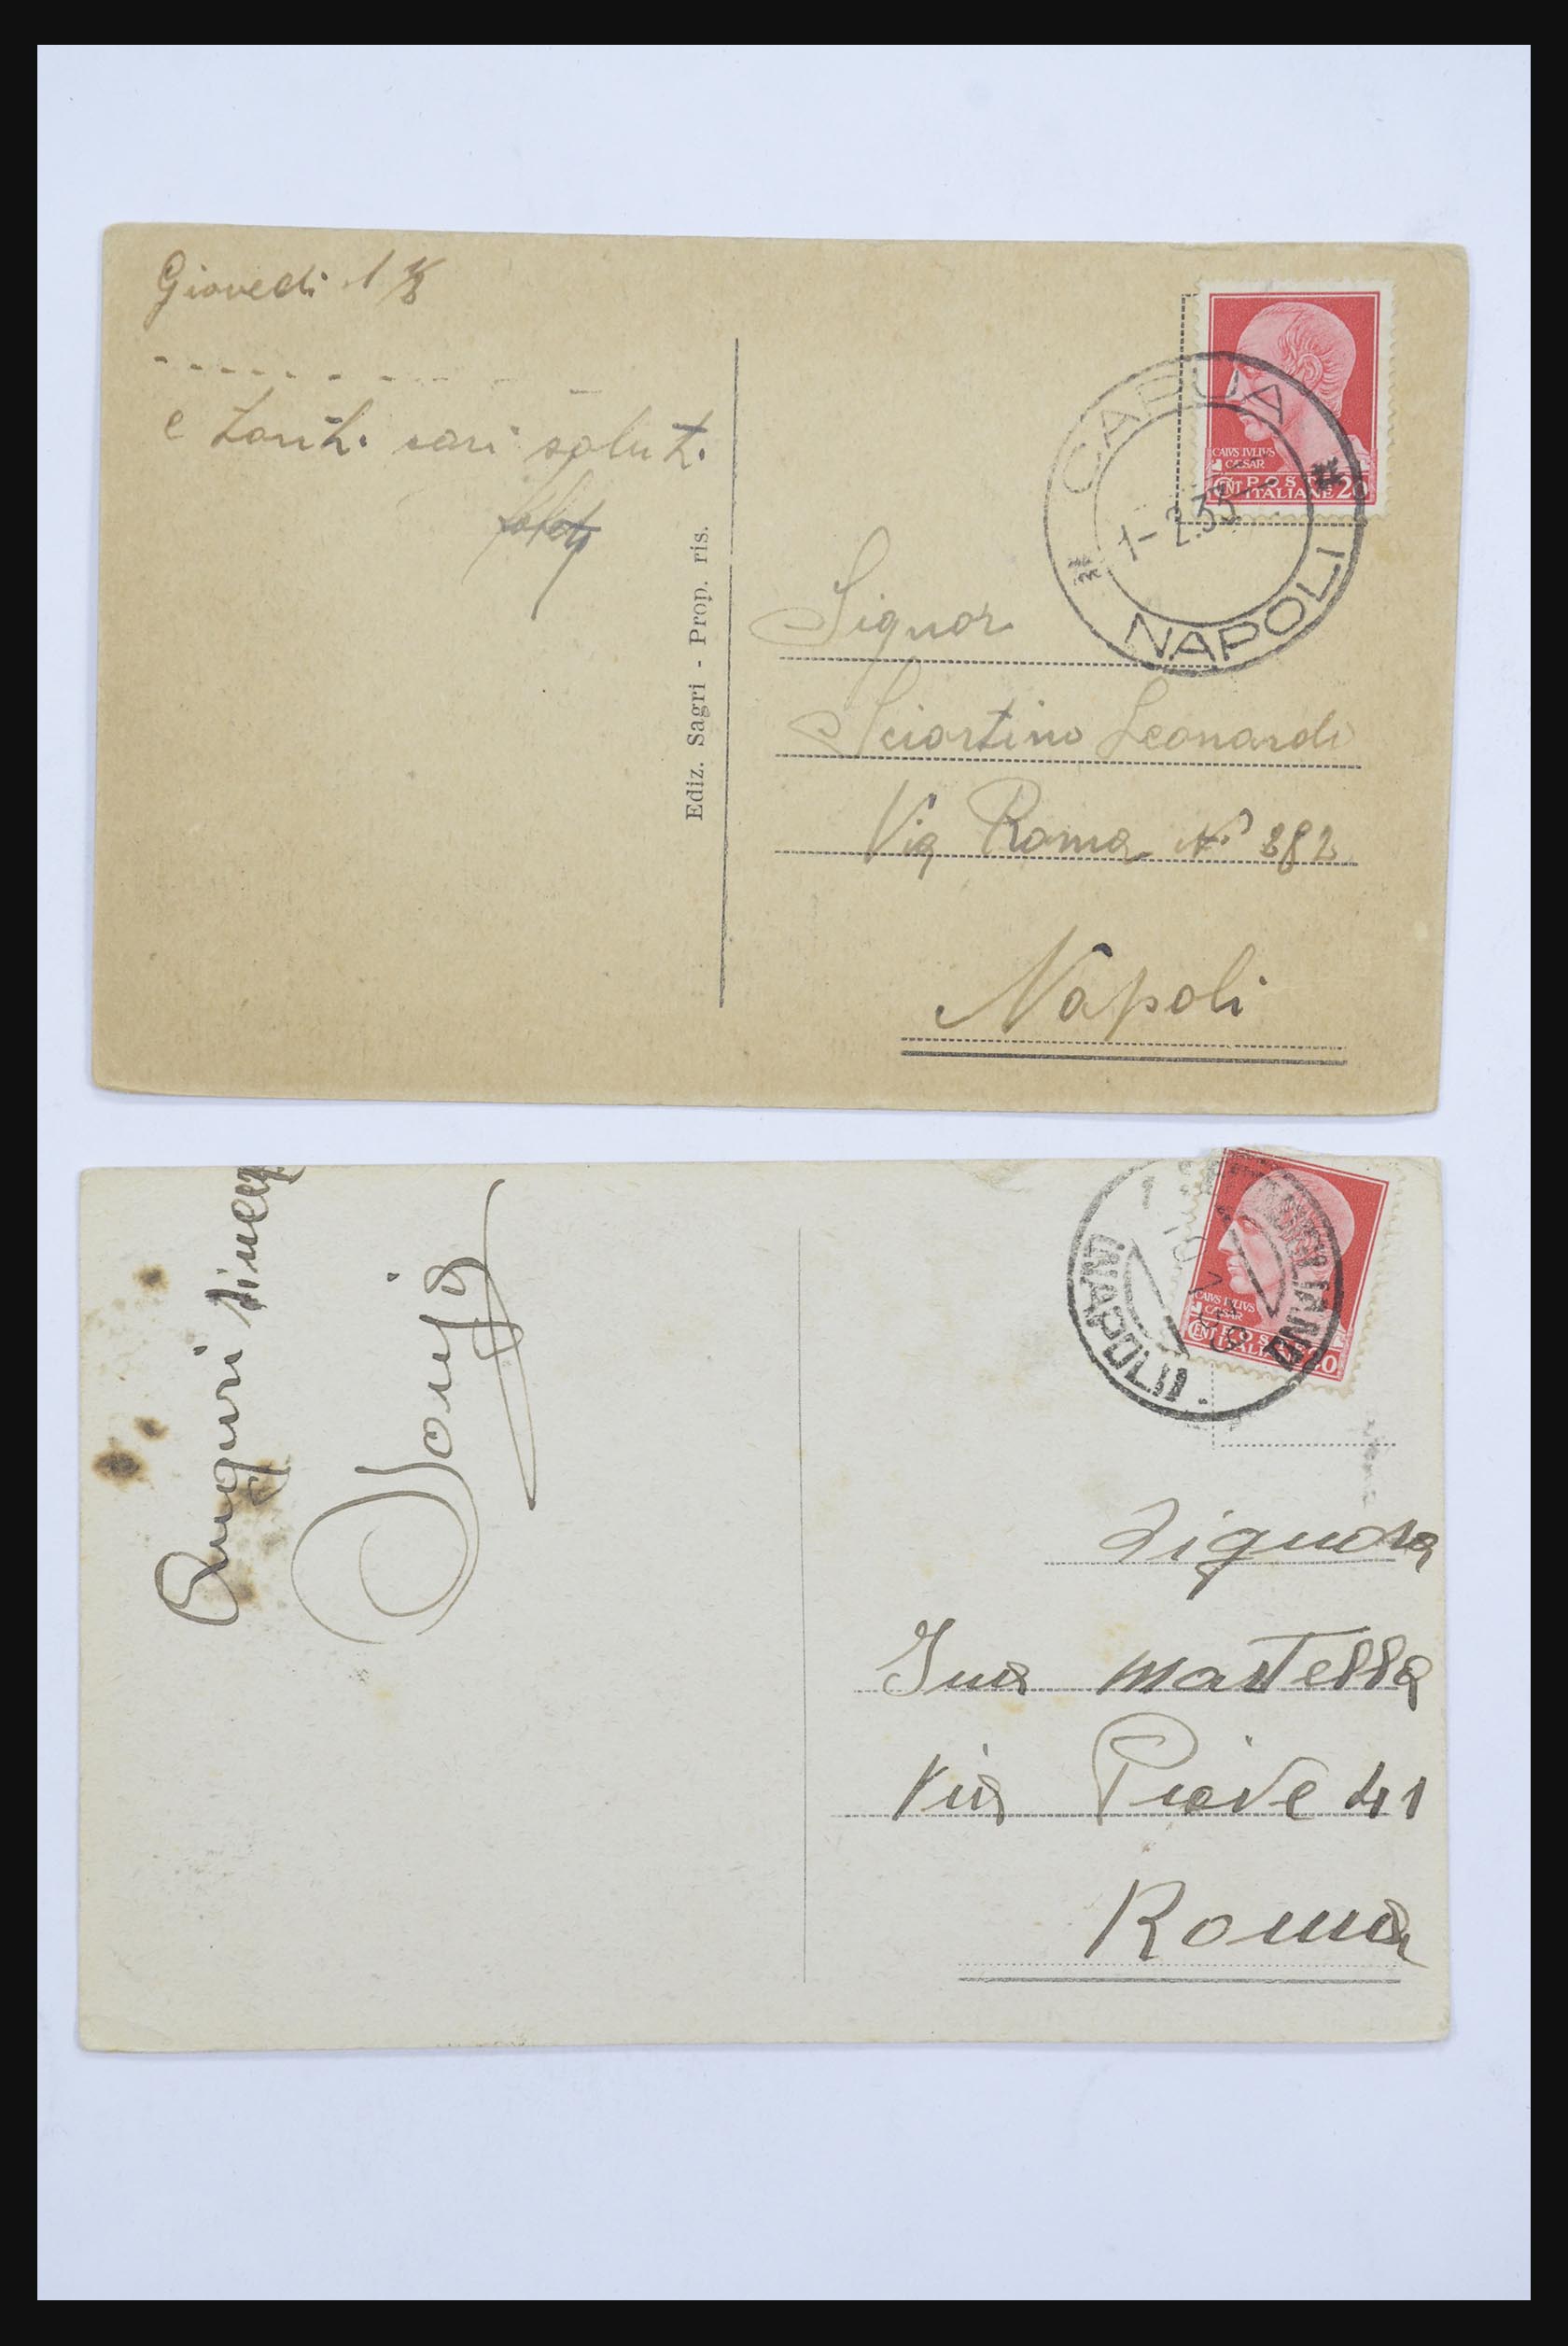 Giovedì 1
e tanti cari saluti
Ediz. Sagri - Prop. ris.
CAIVS IVLIVS
CÆSAR
CENT POSTE 20
ITALIANE
CAPUA
1-2.33
NAPOLI
Signor
Sciortino Leonardo
Via Roma N° 282
Napoli
Auguri sinceri
CAIVS IVLIVS
CÆSAR
CENT POSTE 20
ITALIANE
(NAPOLI)
Signora
Ina Martella
Via Piave 41
Roma